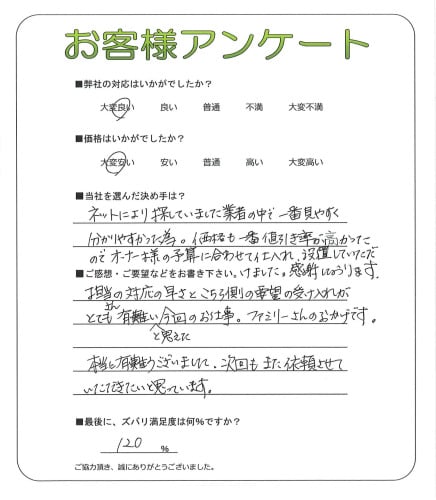 お客様アンケート
■弊社の対応はいかがでしたか？
大変良い 良い 普通 不満 大変不満
■価格はいかがでしたか？
大変安い 安い 普通 高い 大変高い
■当社を選んだ決め手は？
ネットにより探していました業者の中で一番見やすく
分かりやすかった為。価格も一番値引き率が高かった
のでオーナー様の予算に合わせて仕入れ、設置していただ
けました。感謝しております。
■ご感想・ご要望などをお書き下さい。
担当さんの対応の早さとこちら側の要望の受け入れが
とても有難いと思えた今回のお仕事。ファミリーさんのおかげです。
本当に有難うございました、次回もまた依頼させて
いただきたいと思っています。
■最後に、ズバリ満足度は何%ですか？
120 %
ご協力頂き、誠にありがとうございました。